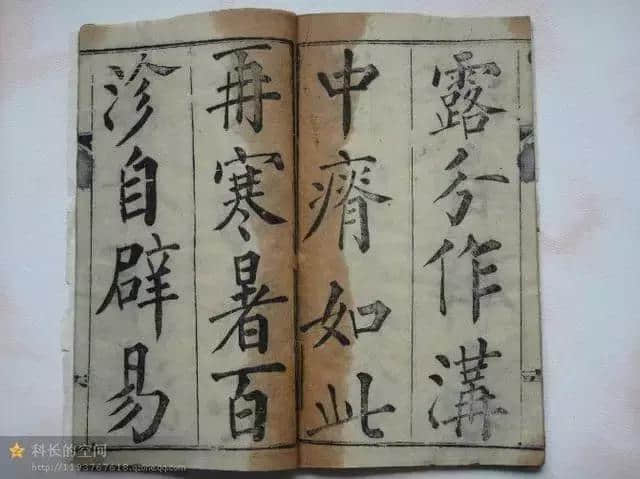 露分作溝
中瘠如此
再寒暑百
沴自辟易
科长的空间
http://1193767618.qzone.qq.com